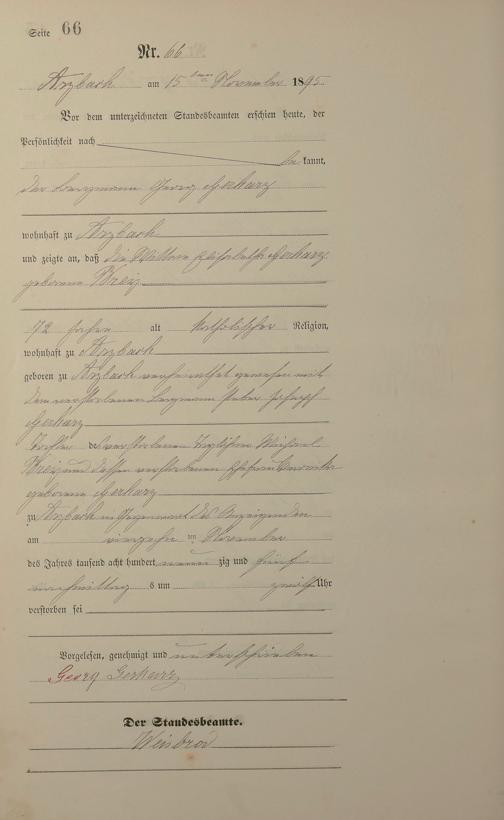 Seite 66
Nr. 66
Arzbach am 15ten November 1895
Vor dem unterzeichneten Standesbeamten erschien heute, der
Persönlichkeit nach
be kannt,
der Bergmann Georg Gerharz
wohnhaft zu Arzbach
und zeigte an, daß die Wittwe Elisabetha Gerharz
geborene Kreiz
72 Jahre alt katholischer Religion,
wohnhaft zu Arzbach
geboren zu Arzbach verheirathet gewesen mit
dem verstorbenen Bergmann Peter Joseph
Gerharz
Tochter des verstorbenen Taglöhner Michael
Kreiz und dessen verstorbenen Ehefrau
geborene Gerharz
zu Arzbach in Gegenwart des Anzeigenden
am vierzehn ten November
des Jahres tausend acht hundert neun zig und fünf
nachmittag s um zwölf Uhr
verstorben sei
Vorgelesen, genehmigt und unterschrieben
Georg Gerharz
Der Standesbeamte.
Weisbrod